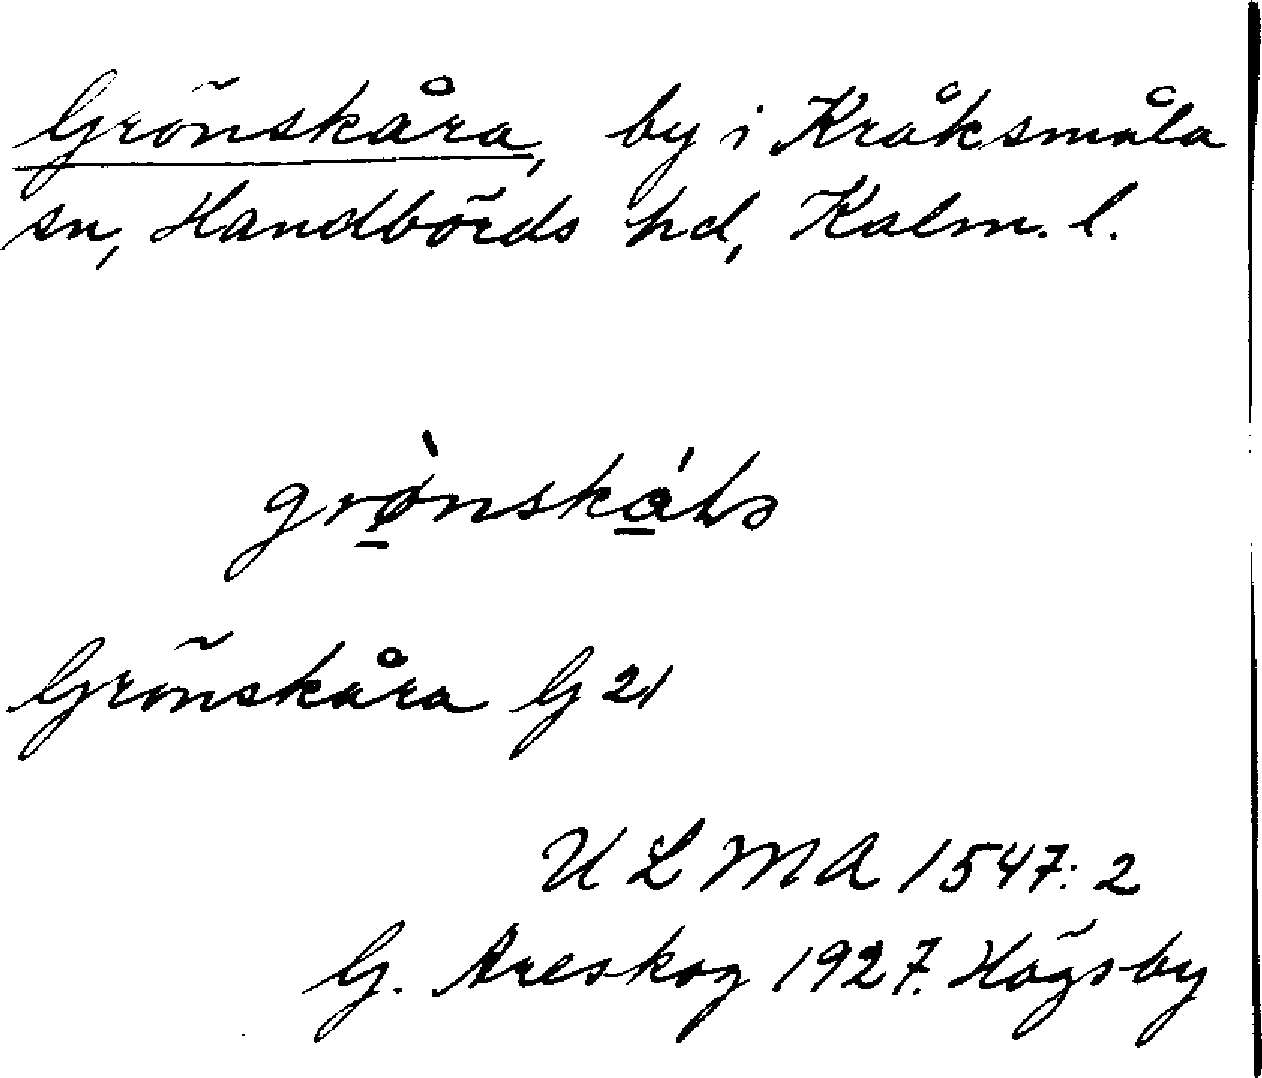 Grönskåra, by i Kråksmåla
sn, Handbörds hd, Kalm. l.
Grönskåra G 21
ULMA 1547:2
G. Areskog 1927. Högsby